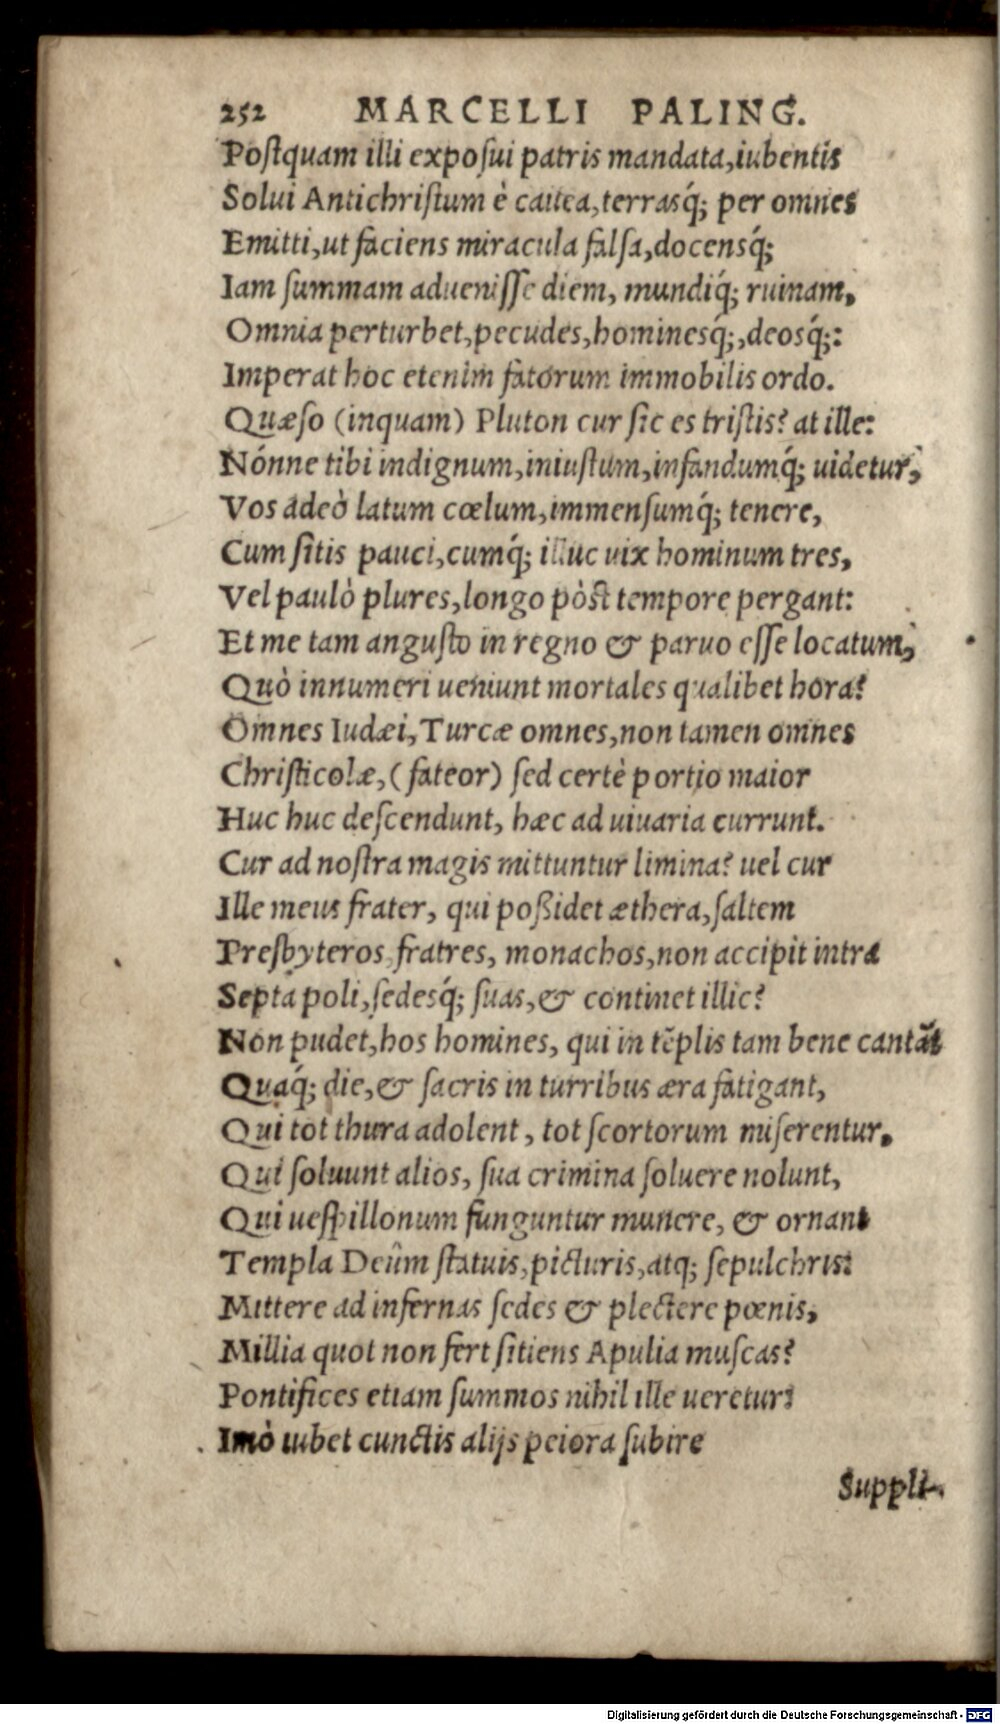 252 MARCELLI PALING.
Poſtquam illi expoſui patris mandata,iubentis
Solui Antichriſtum è cauea,terrasq́; per omnes
Emitti,ut faciens miracula falſa,docensq́;
Iam ſummam adueniſſe diem, mundiq́; ruinam,
Omnia perturbet,pecudes,hominesq́;,deosq́;:
Imperat hoc etenim fatorum immobilis ordo.
Quæſo (inquam) Pluton cur ſic es triſtis? at ille:
Nónne tibi indignum,iniuſtum,infandumq́; uidetur,
Vos adeò latum cœlum,immenſumq́; tenere,
Cum ſitis pauci,cumq́; illuc uix hominum tres,
Vel paulò plures,longo pòſt tempore pergant:
Et me tam anguſto in regno & paruo eſſe locatum,
Quò innumeri ueniunt mortales qualibet hora?
Omnes Iudæi,Turcæ omnes,non tamen omnes
Chriſticolæ,(fateor) ſed certè portio maior
Huc huc deſcendunt, hæc ad uiuaria currunt.
Cur ad noſtra magis mittuntur limina? uel cur
Ille meus frater, qui poßidet æthera,ſaltem
Presbyteros,fratres, monachos,non accipit intra
Septa poli,ſedesq́; ſuas,& continet illic?
Non pudet,hos homines, qui in tẽplis tam bene cantãt
Quaq́; die,& ſacris in turribus æra fatigant,
Qui tot thura adolent, tot ſcortorum miſerentur,
Qui ſoluunt alios, ſua crimina ſoluere nolunt,
Qui ueſpillonum funguntur munere, & ornant
Templa Deûm ſtatuis,picturis,atq; ſepulchris:
Mittere ad infernas ſedes & plectere pœnis,
Millia quot non fert ſitiens Apulia muſcas?
Pontifices etiam ſummos nihil ille ueretur:
Imò iubet cunctis alijs peiora ſubire
Suppli-
Digitalisierung gefördert durch die Deutsche Forschungsgemeinschaft - DFG